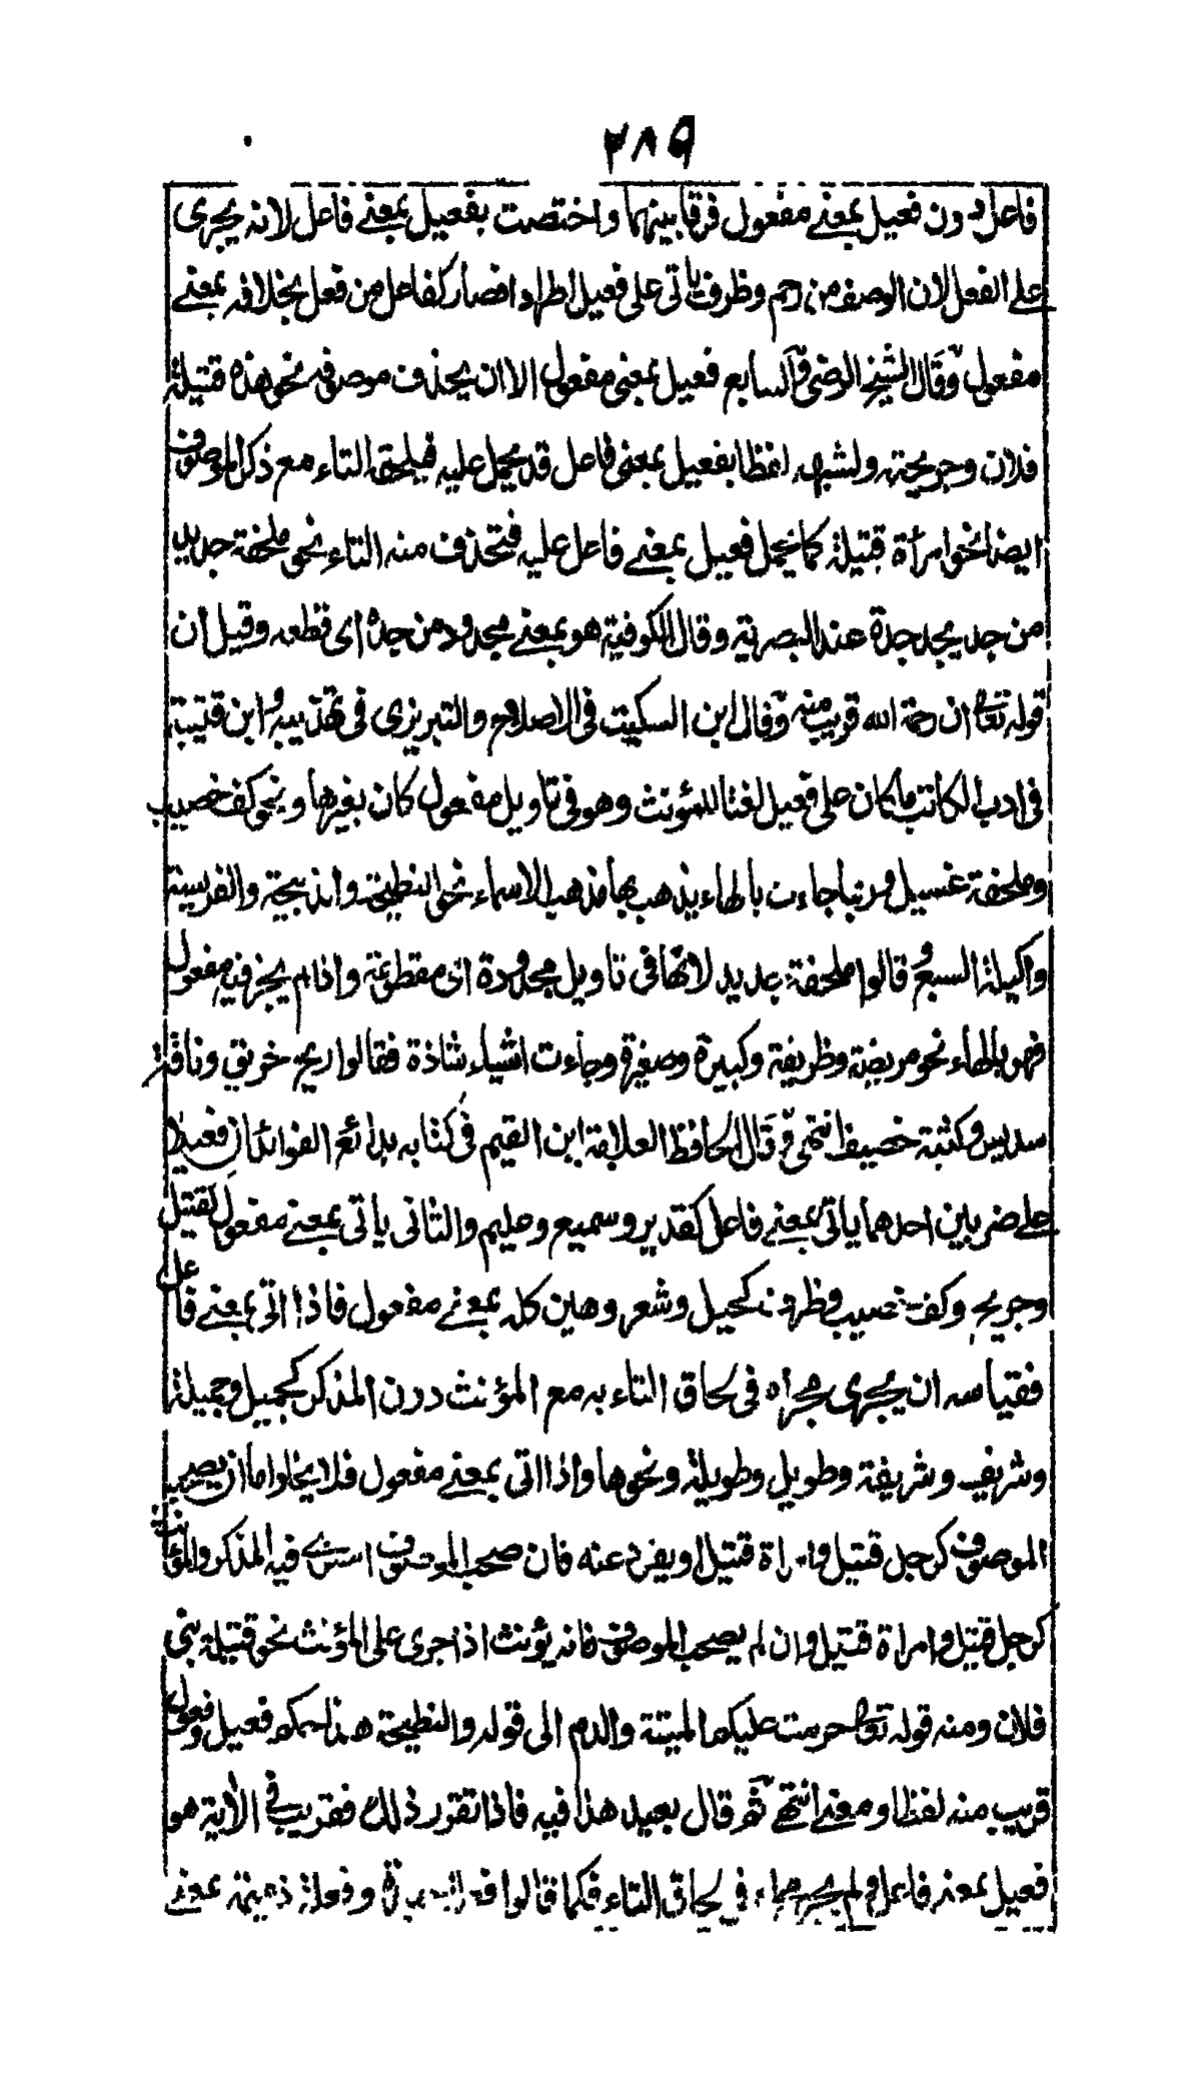 ٢٨٩
فاعل دون فعيل بمعنے مفعول فرقا بينهما واختصت بفعيل بمعنے فاعل لانه يجرى
على الفعل لان الوصف من رحم وظرف ياتى على فعيل اطرادا فصار كفاعل من فعل بخلافه بمعنے
مفعول وقال الشيخ الرضى السابع فعيل بمعنى مفعول الا ان يحذف موصوفه نحو هذه قتيلة
فلان وجريحته ولشبهه لفظا بفعيل بمعنى فاعل قد يحمل عليه فيلحق التاء مع ذكر الموصوف
ايضا نحو امرأة قتيلة كما يحمل فعيل بمعنے فاعل عليه فتحذف منه التاء نحو ملحفة جديد
من جد يجد جدة عند البصرية وقال الكوفية هو بمعنے مجدود من جده اى قطعه وقيل أن
قوله تعالى ان رحمة الله قريب منه وقال ابن السكيت فى الاصلاح والتبريزى فى تهذيبه وابن قتيبة
فى ادب الكاتب ما كان على فعيل لغتا للمؤنث وهو فى تاويل مفعول كان بغيرها ونحو كف خصيب
وملحفة غسيل وربما جاءت بالهاء يذهب بها مذهب الاسماء نحو النطيحة والذبيحة والفريسة
واكيلة السبع وقالوا ملحفة جديد لانها فى تاويل مجدودة اى مقطوعة واذا لم يجز فيه مفعول
فهو بالهاء نحو مريضة وظريفة وكبيرة وصغيرة وجاءت اشياء شاذة فقالوا ريح خريق وناقة
سديس وكتيبة خصيف انتهى وقال الحافظ العلامة ابن القيم فى كتابه بدائع الفوائد ان فعيلا
على ضربين احدهما ياتى بمعنے فاعل كقدير وسميع وعليم والثانى يأتى بمعنے مفعول كقتيل
وجريح وكف خصيب وطرف كحيل وشعر دهين كله بمعنے مفعول فاذا اتى بمعنے فاعل
فقياسه ان يجرى مجراه فى لحاق التاء به مع المؤنث دون المذكر كجميل وجميلة
وشريف وشريفة وطويل وطويلة ونحوها واذا اتى بمعنے مفعول فلا يخلو اما ان يصحب
الموصوف كرجل قتيل وامراة قتيل او يفرد عنه فان صحب الموصوف استوے فيه المذكر والمؤنث
كرجل قتيل وامراة قتيل وان لم يصحب الموصوف فانه يؤنث اذا جرى على المؤنث نحو قتيلة بنى
فلان ومنه قوله تعالى حرمت عليكم الميتة والدم الى قوله والنطيحة هذا حكم فعيل وفعول
قريب منه لفظا ومعنے انتهى ثم قال بعيد هذا فيه فاذا تقرر ذلك فقريب فى الأية هو
فعيل بمعنے فاعل ولم يجر مجراه فى لحاق التاء فكما قالوا حميدة وفعلة ذميمة بمعنے